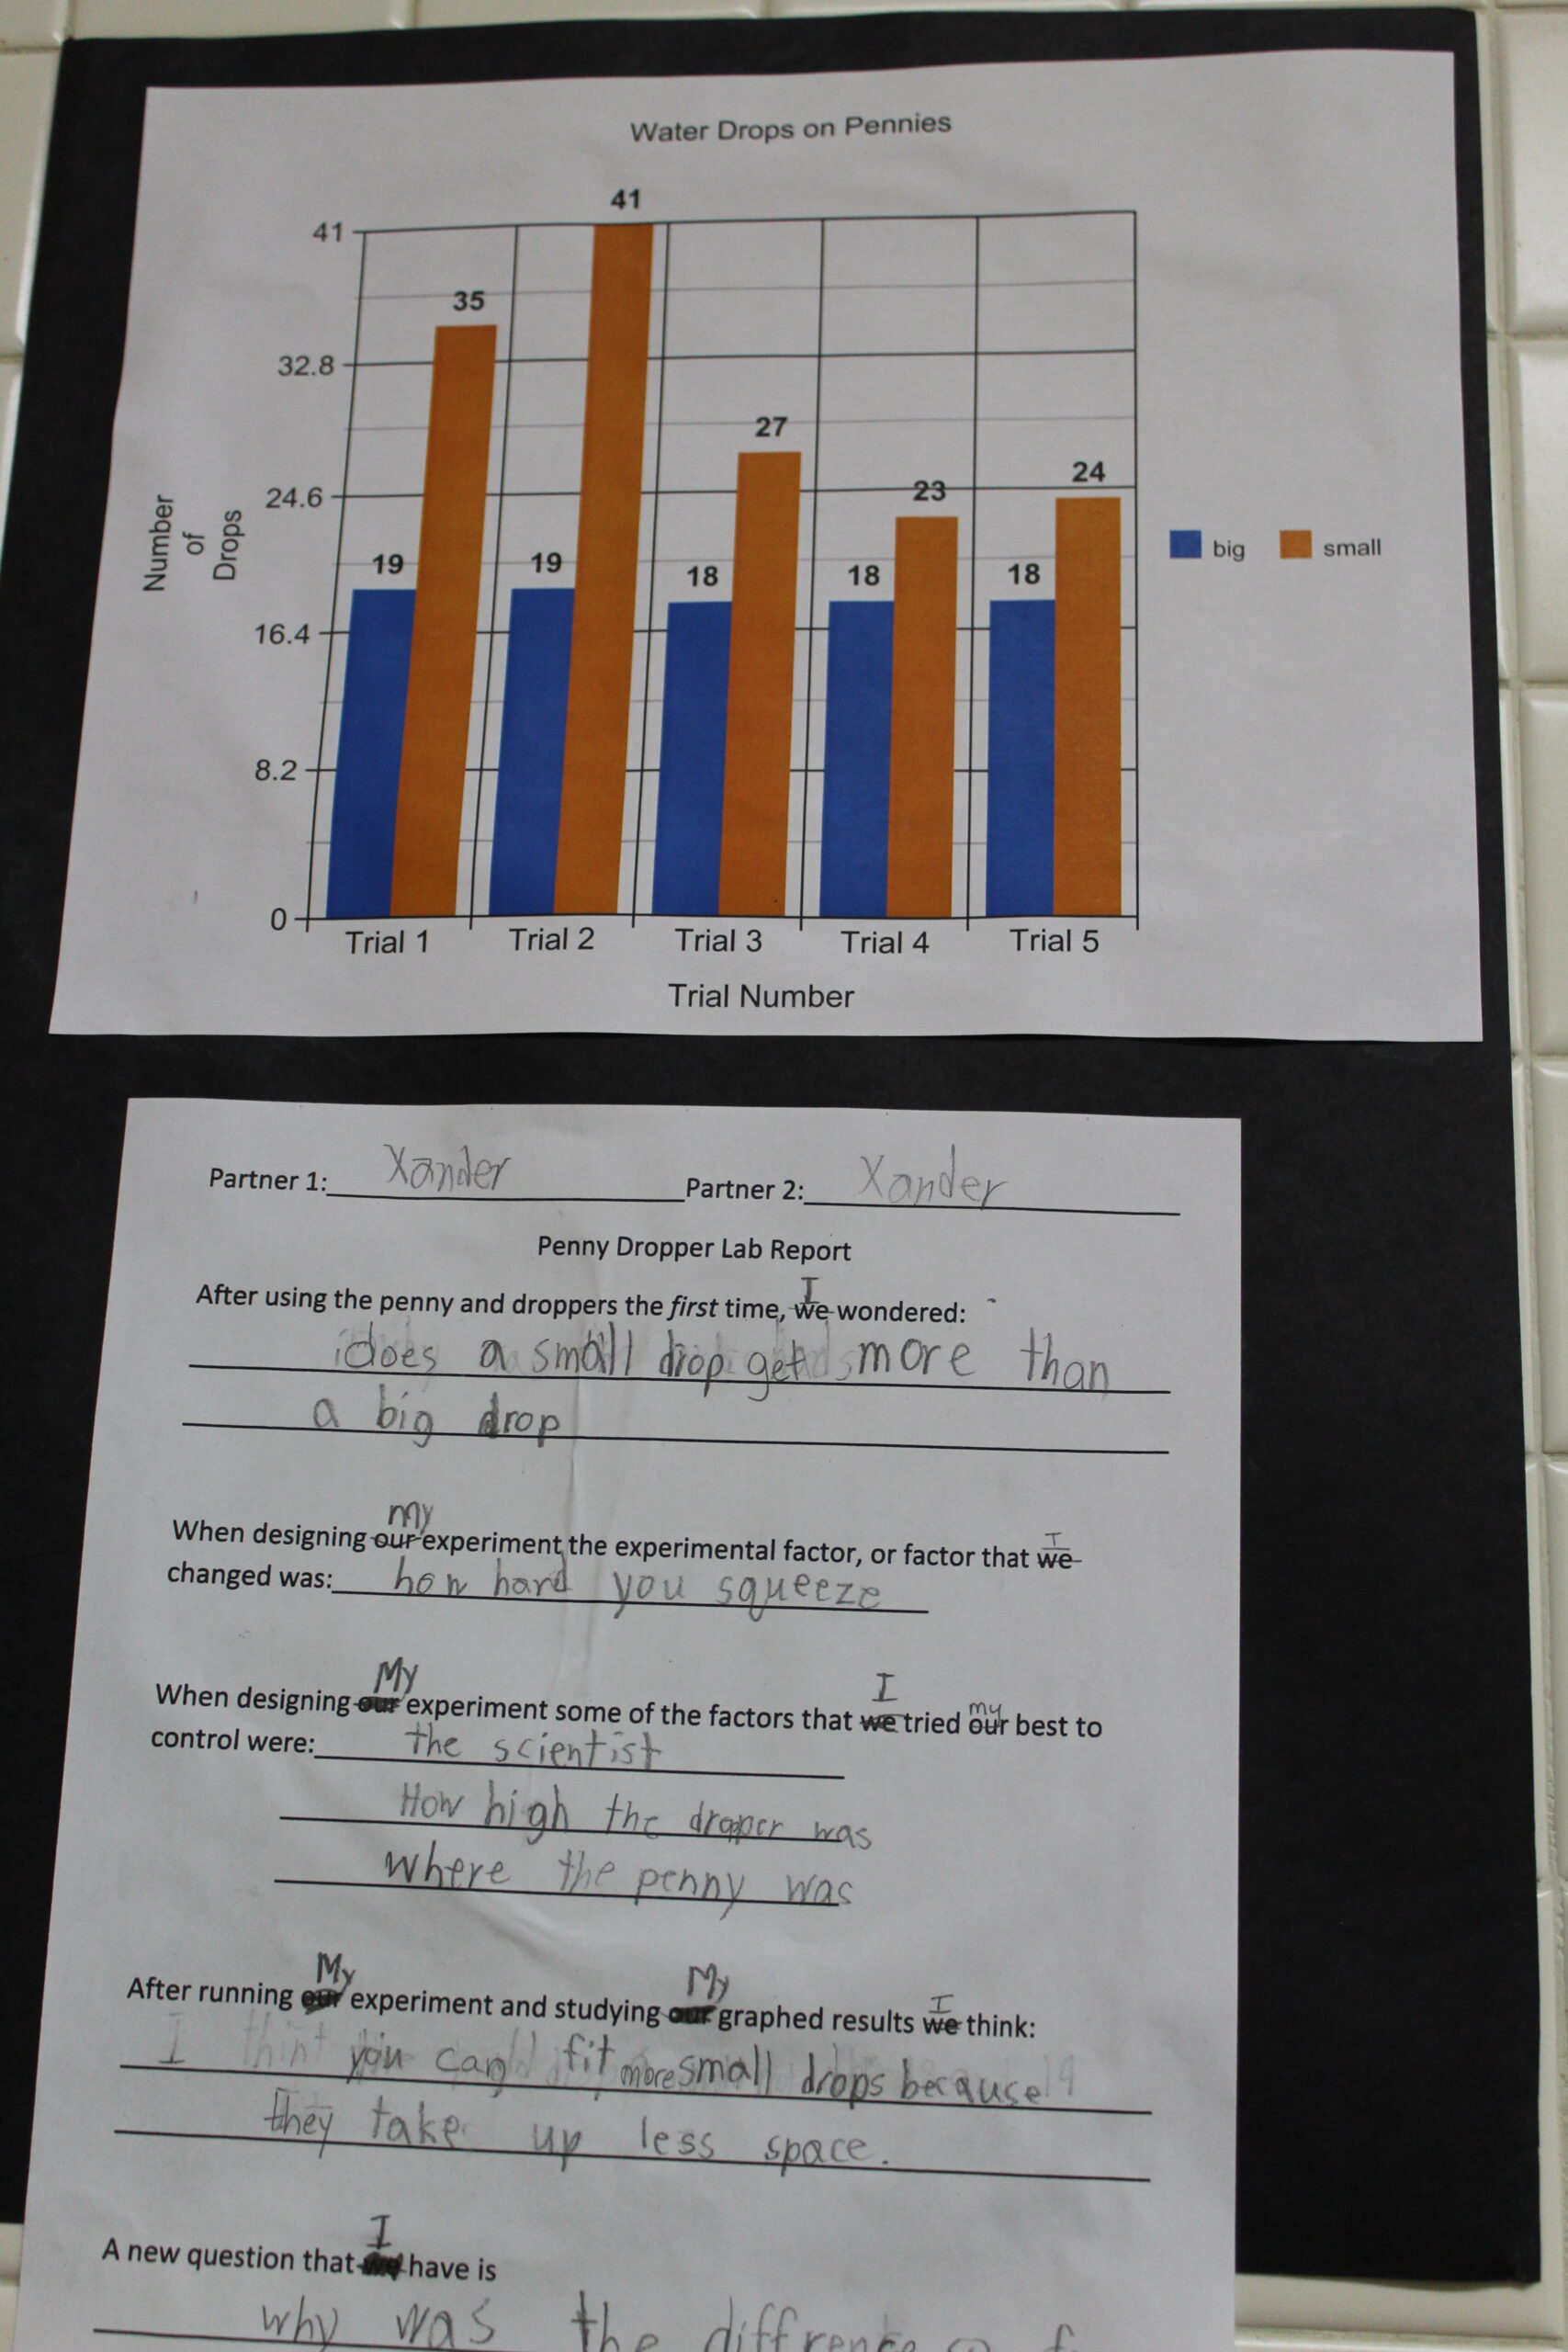 Water Drops on Pennies
41
41
35
32.8
27
24.6
24
23
19
19
18
18
18
16.4
8.2
0
Number
of
Drops
big
small
Trial 1
Trial 2
Trial 3
Trial 4
Trial 5
Trial Number
Partner 1: Xander Partner 2: Xander
Penny Dropper Lab Report
I
After using the penny and droppers the first time, we wondered:
does a small drop get more than
a big drop
my I
When designing our experiment the experimental factor, or factor that we
changed was: how hard you squeeze
My I my
When designing our experiment some of the factors that we tried our best to
control were: the scientist
How high the draper was
where the penny was
My My I
After running our experiment and studying our graphed results we think:
I thin you can fit more small drops because
they take up less space.
I
A new question that we have is
why was the diffrence